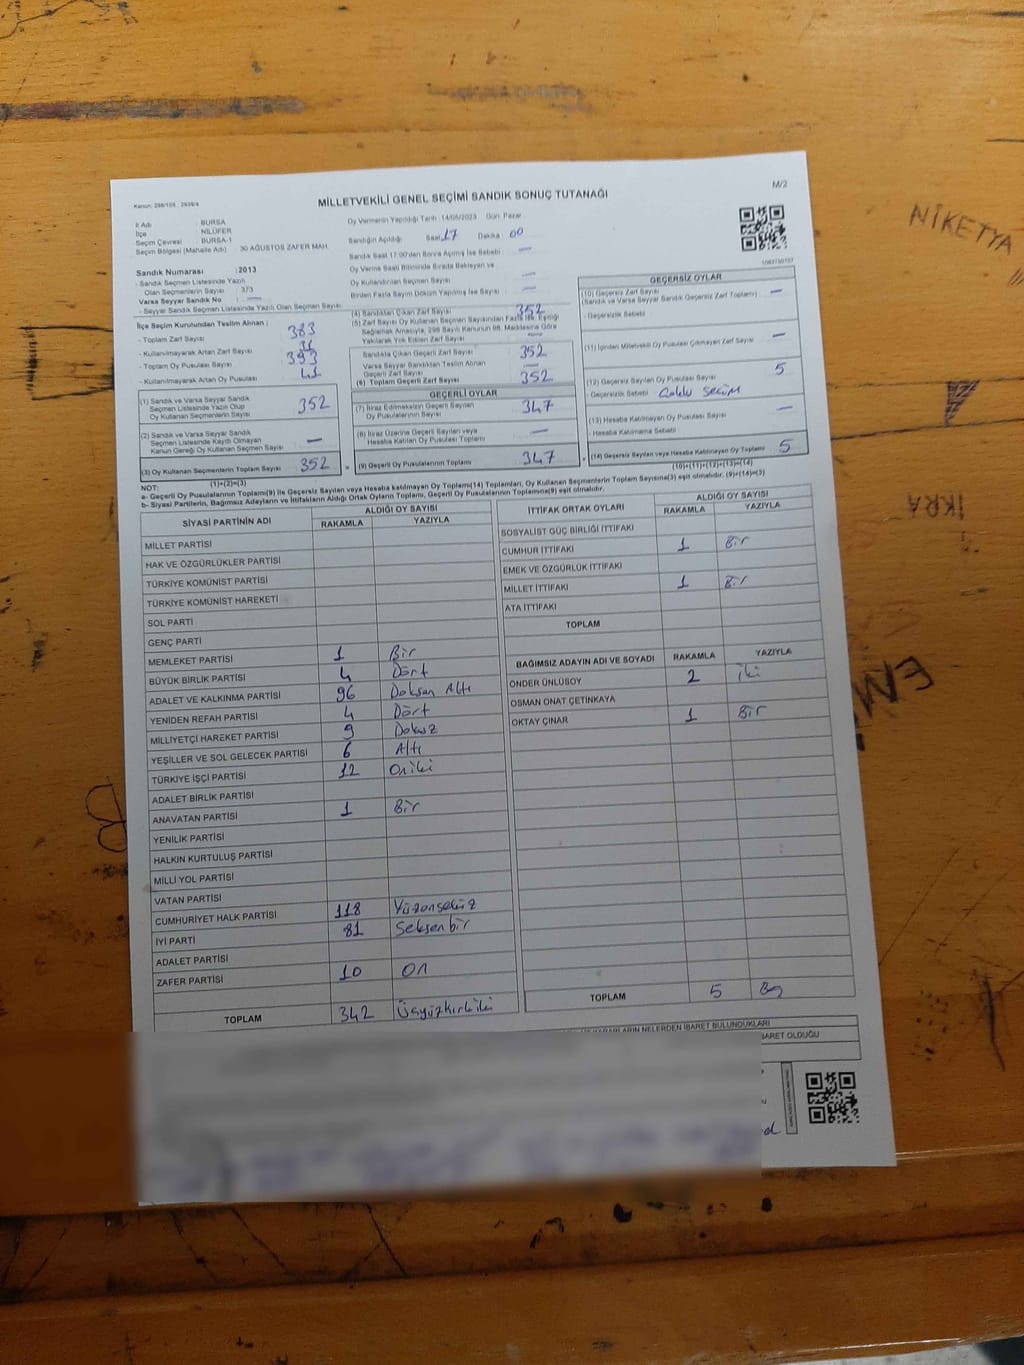 Kanun: 298/105, 2839/4
MİLLETVEKİLİ GENEL SEÇİMİ SANDIK SONUÇ TUTANAĞI
M/2
İl Adı : BURSA
İlçe : NİLÜFER
Seçim Çevresi : BURSA-1
Seçim Bölgesi (Mahalle Adı) : 30 AĞUSTOS ZAFER MAH.
Oy Vermenin Yapıldığı Tarih : 14/05/2023 Gün: Pazar
Sandığın Açıldığı Saat 17 Dakika : 00
Sandık Saat 17:00'den Sonra Açılmış İse Sebebi : —
Oy Verme Saati Bitiminde Sırada Bekleyen ve
Oy Kullandırılan Seçmen Sayısı : —
Birden Fazla Sayım Döküm Yapılmış İse Sayısı : —
Sandık Numarası : 2013
- Sandık Seçmen Listesinde Yazılı
Olan Seçmenlerin Sayısı : 373
Varsa Seyyar Sandık No : —
- Seyyar Sandık Seçmen Listesinde Yazılı Olan Seçmen Sayısı
İlçe Seçim Kurulundan Teslim Alınan :
- Toplam Zarf Sayısı : 383
- Kullanılmayarak Artan Zarf Sayısı : 31
- Toplam Oy Pusulası Sayısı : 393
- Kullanılmayarak Artan Oy Pusulası : 41
(1) Sandık ve Varsa Seyyar Sandık
Seçmen Listesinde Yazılı Olup
Oy Kullanan Seçmenlerin Sayısı 352
(2) Sandık ve Varsa Seyyar Sandık
Seçmen Listesinde Kayıtlı Olmayan
Kanun Gereği Oy Kullanan Seçmen Sayısı —
(3) Oy Kullanan Seçmenlerin Toplam Sayısı 352
(1)+(2)=(3)
(4) Sandıktan Çıkan Zarf Sayısı 352
(5) Zarf Sayısı Oy Kullanan Seçmen Sayısından Fazla İse, Eşitliği
Sağlamak Amacıyla, 298 Sayılı Kanunun 98. Maddesine Göre
Yakılarak Yok Edilen Zarf Sayısı —
Sandıkta Çıkan Geçerli Zarf Sayısı 352
Varsa Seyyar Sandıktan Teslim Alınan
Geçerli Zarf Sayısı —
(6) Toplam Geçerli Zarf Sayısı 352
GEÇERLİ OYLAR
(7) İtiraz Edilmeksizin Geçerli Sayılan
Oy Pusulalarının Sayısı 347
(8) İtiraz Üzerine Geçerli Sayılan veya
Hesaba Katılan Oy Pusulası Toplamı —
(9) Geçerli Oy Pusulalarının Toplamı 347
GEÇERSİZ OYLAR
(10) Geçersiz Zarf Sayısı
(Sandık ve Varsa Seyyar Sandık Geçersiz Zarf Toplamı) —
- Geçersizlik Sebebi :
(11) İçinden Milletvekili Oy Pusulası Çıkmayan Zarf Sayısı —
(12) Geçersiz Sayılan Oy Pusulası Sayısı 5
- Geçersizlik Sebebi : Çoklu seçim
(13) Hesaba Katılmayan Oy Pusulası Sayısı —
- Hesaba Katılmama Sebebi :
(14) Geçersiz Sayılan veya Hesaba Katılmayan Oy Toplamı 5
(10)+(11)+(12)+(13)=(14)
NOT:
a- Geçerli Oy Pusulalarının Toplamı(9) ile Geçersiz Sayılan veya Hesaba katılmayan Oy Pusulası Toplamı(14) Toplamları, Oy Kullanan Seçmenlerin Toplam Sayısına(3) eşit olmalıdır. (9)+(14)=(3)
b- Siyasi Partilerin, Bağımsız Adayların ve İttifakların Aldığı Ortak Oyların Toplamı, Geçerli Oy Pusulalarının Toplamına(9) eşit olmalıdır.
SİYASİ PARTİNİN ADI ALDIĞI OY SAYISI
RAKAMLA YAZIYLA
MİLLET PARTİSİ
HAK VE ÖZGÜRLÜKLER PARTİSİ
TÜRKİYE KOMÜNİST PARTİSİ
TÜRKİYE KOMÜNİST HAREKETİ
SOL PARTİ
GENÇ PARTİ
MEMLEKET PARTİSİ 1 Bir
BÜYÜK BİRLİK PARTİSİ 4 Dört
ADALET VE KALKINMA PARTİSİ 96 Doksan Altı
YENİDEN REFAH PARTİSİ 4 Dört
MİLLİYETÇİ HAREKET PARTİSİ 9 Dokuz
YEŞİLLER VE SOL GELECEK PARTİSİ 6 Altı
TÜRKİYE İŞÇİ PARTİSİ 12 Oniki
ADALET BİRLİK PARTİSİ
ANAVATAN PARTİSİ 1 Bir
YENİLİK PARTİSİ
HALKIN KURTULUŞ PARTİSİ
MİLLİ YOL PARTİSİ
VATAN PARTİSİ
CUMHURİYET HALK PARTİSİ 118 Yüzonsekiz
İYİ PARTİ 81 Seksenbir
ADALET PARTİSİ
ZAFER PARTİSİ 10 On
TOPLAM 342 Üçyüzkırkiki
İTTİFAK ORTAK OYLARI ALDIĞI OY SAYISI
RAKAMLA YAZIYLA
SOSYALİST GÜÇ BİRLİĞİ İTTİFAKI
CUMHUR İTTİFAKI 1 Bir
EMEK VE ÖZGÜRLÜK İTTİFAKI
MİLLET İTTİFAKI 1 Bir
ATA İTTİFAKI
TOPLAM
BAĞIMSIZ ADAYIN ADI VE SOYADI RAKAMLA YAZIYLA
ÖNDER ÜNLÜSOY 2 iki
OSMAN ONAT ÇETİNKAYA
OKTAY ÇINAR 1 Bir
TOPLAM 5 Beş
KARARLARIN NELERDEN İBARET BULUNDUKLARI
İBARET OLDUĞU
NİKETYA
İKRA
EM
B